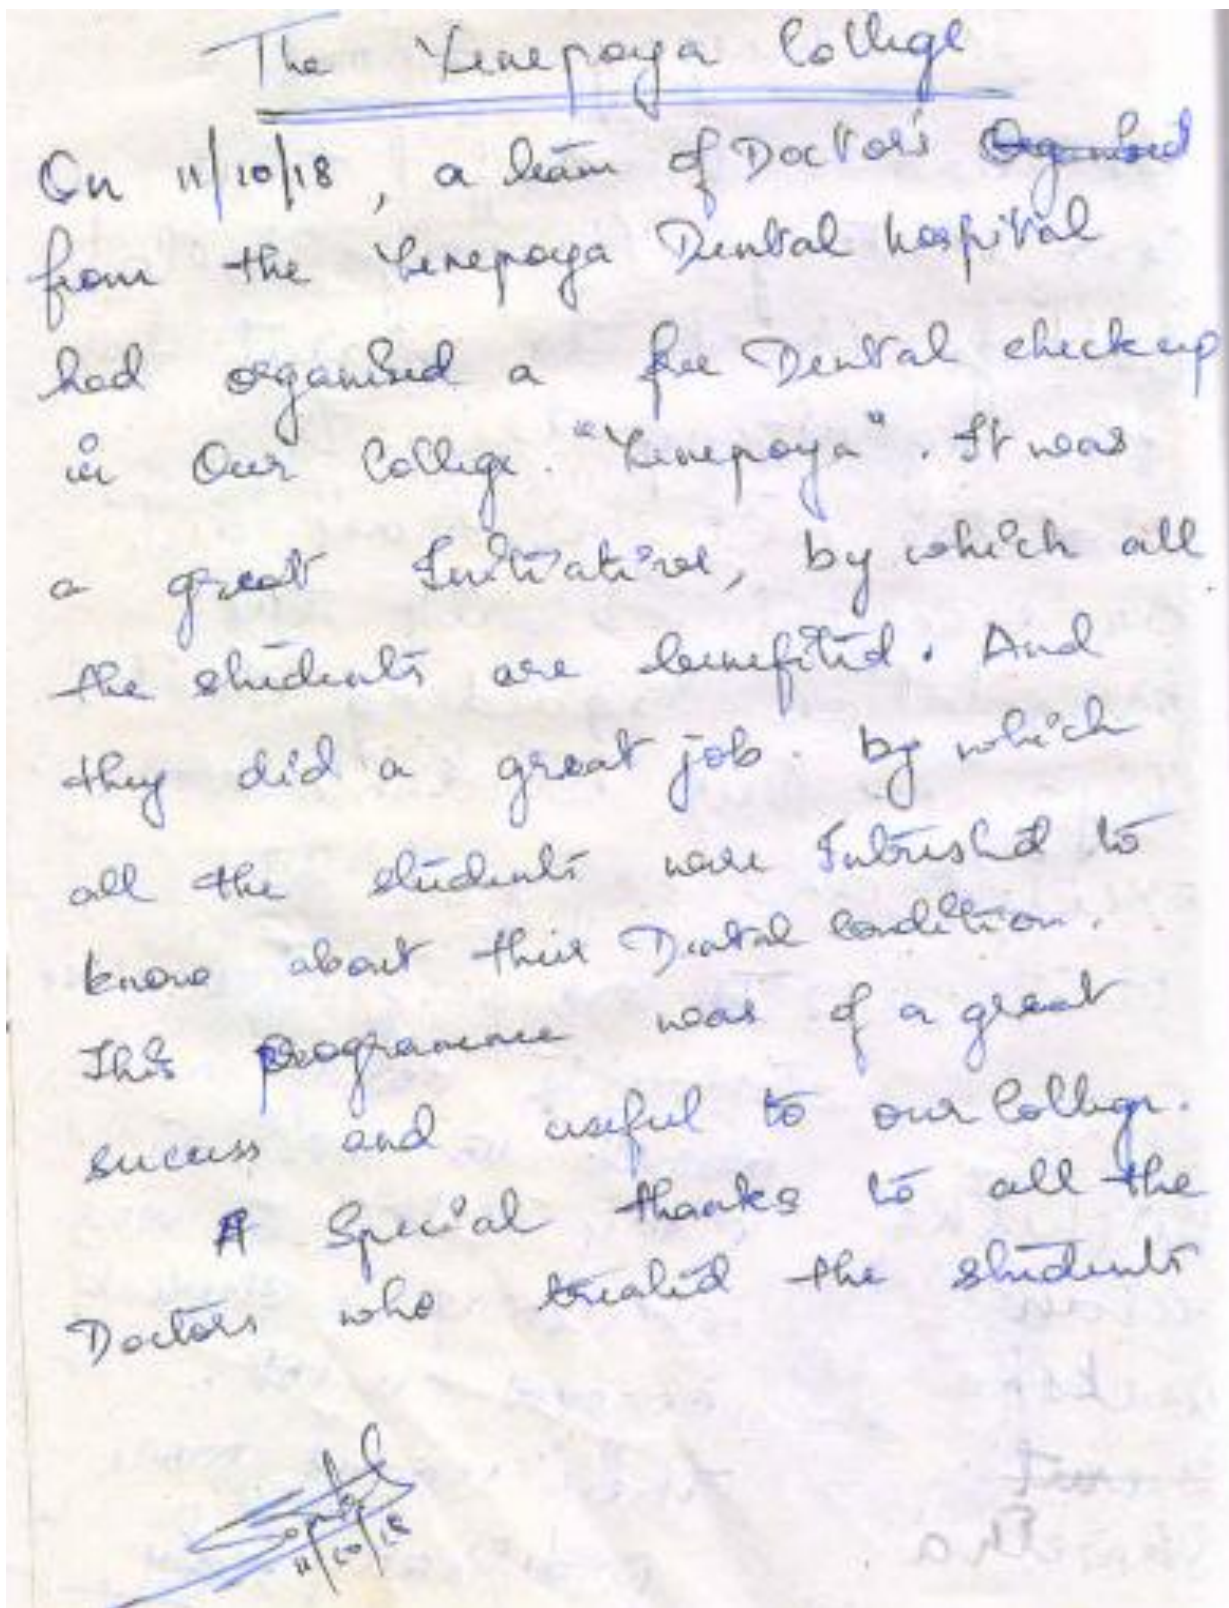 The Yenepoya College
On 11/10/18, a team of Doctors Organised
from the Yenepoya Dental hospital
had organised a free Dental checkup
in Our College. "Yenepoya". It was
a great Initiative, by which all
the students are benefited. And
they did a great job. by which
all the students were Intrested to
know about their Dental condition.
This programme was of a great
success and useful to our College.
A Special thanks to all the
Doctors who treated the students
11/10/18